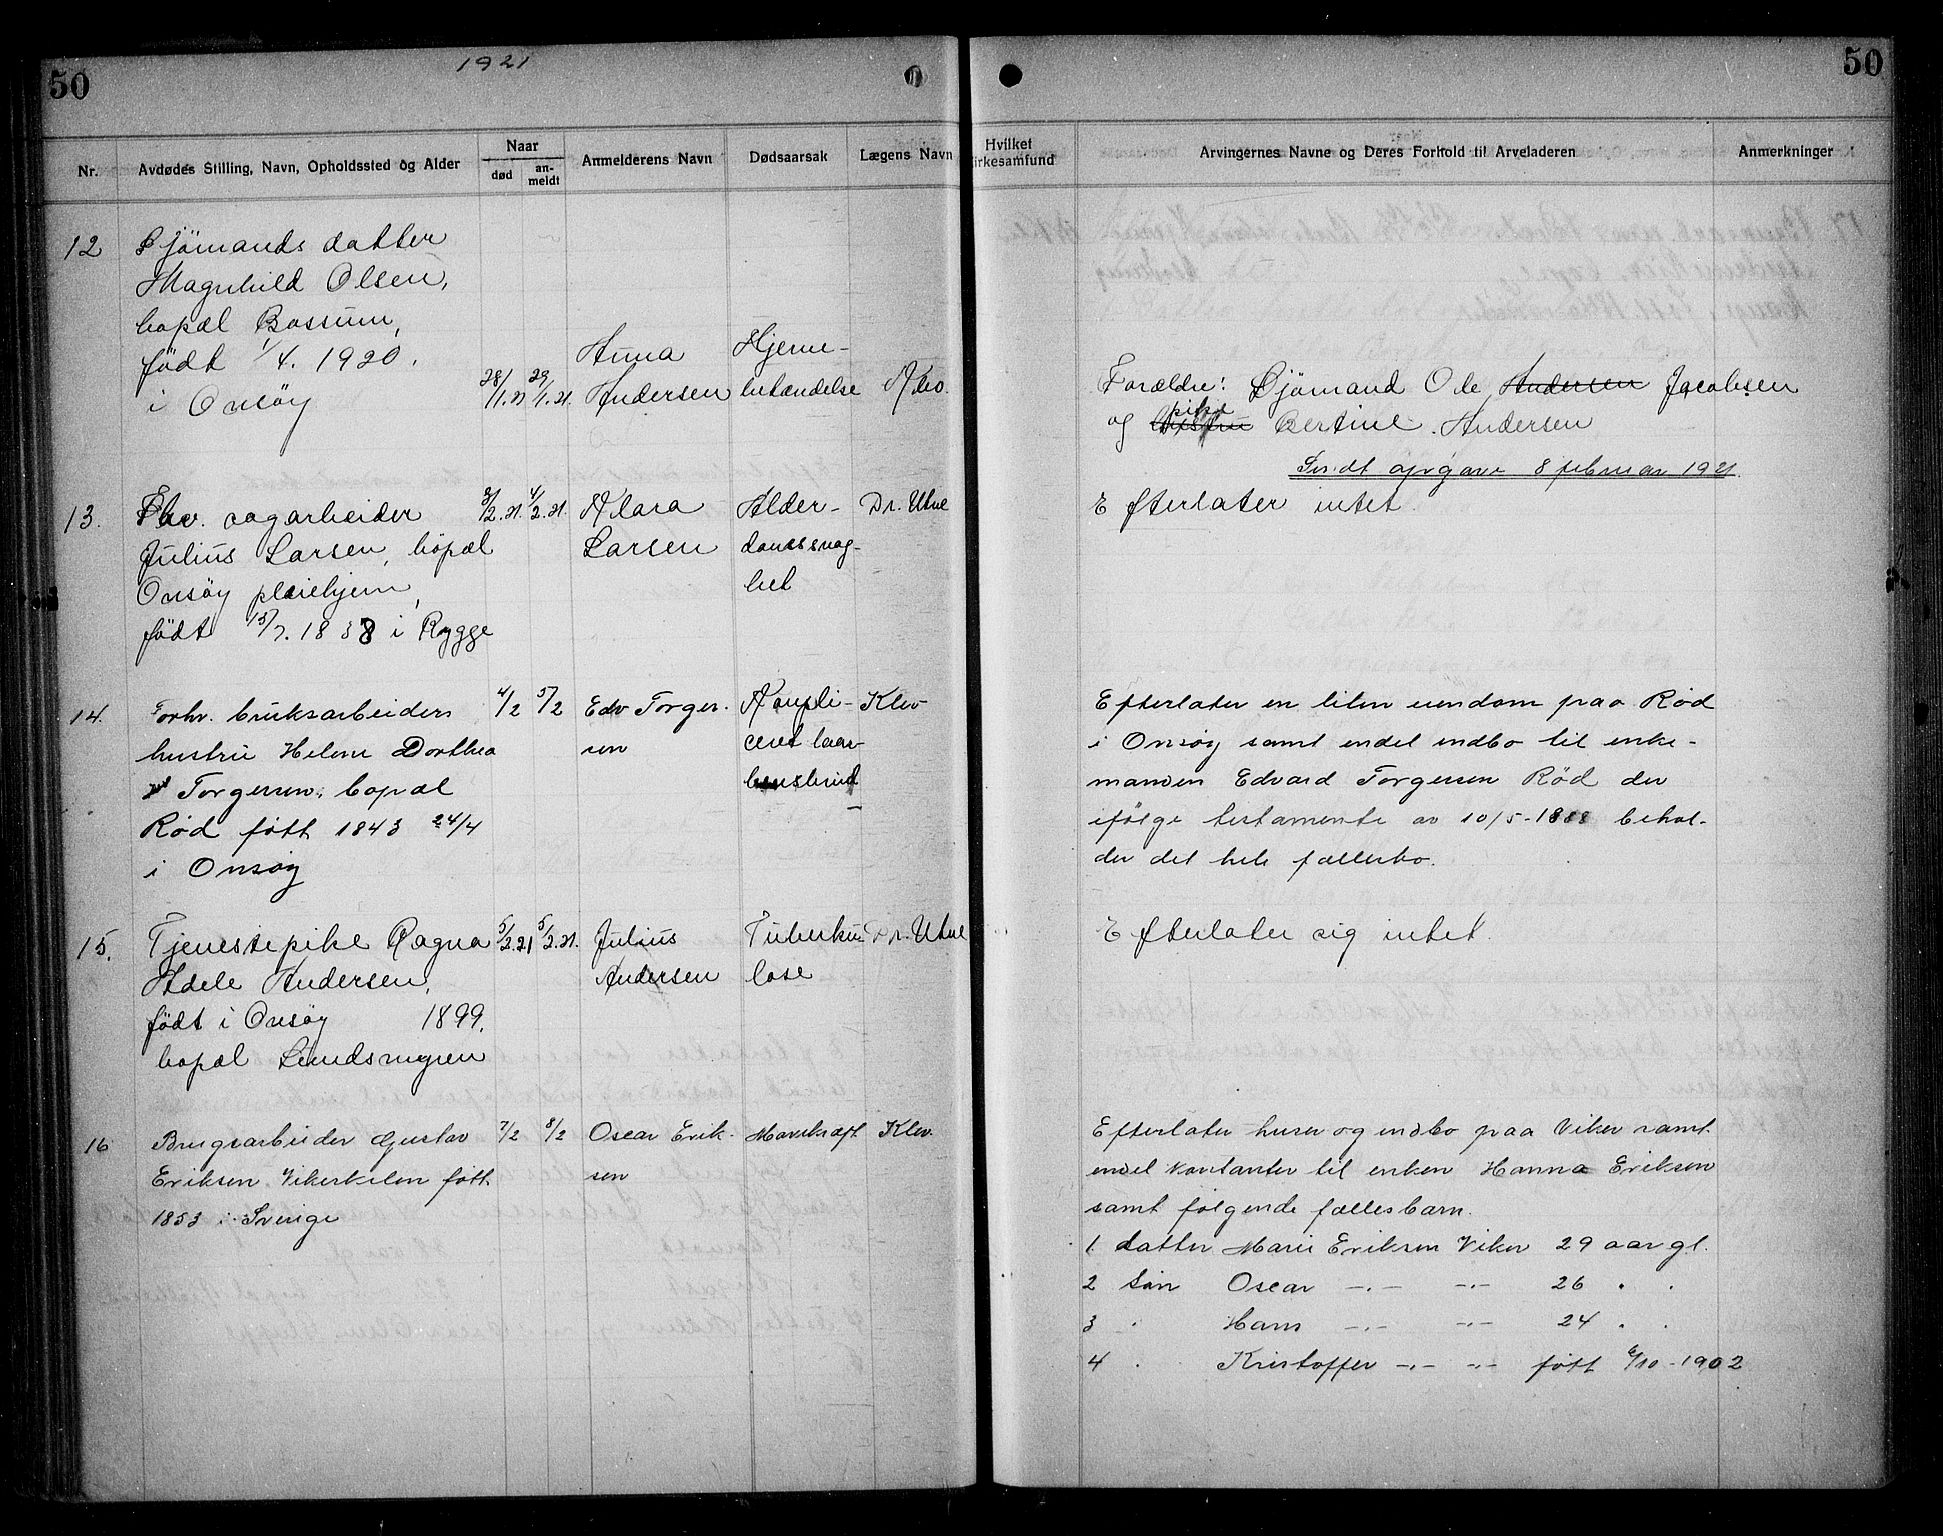 50
1921
Nr.
Avdødes Stilling, Navn, Opholdssted og Alder
Naar
død
an-
meldt
Anmelderens Navn
Dødsaarsak
Lægens Navn
12
Sjömands datter
Magnhild Olsen,
bopæl Bossum,
født 1/4. 1920.
i Onsöy
28/1.21
29/1.21.
Anna
Andersen
Hjerne-
betændelse
Klev.
13.
Fhv. sagarbeider
Julius Larsen, bopæl
Onsöy pleiehjem,
født 15/7. 1838 i Rygge
3/2.21.
4/2.21.
Klara
Larsen
Alder-
domssvag-
het
Dr. Utne
14.
Forhv. bruksarbeiders
hustru Helene Dorthea
Torgersen, bopæl
Rød født 1843 24/4
i Onsøy
4/2
5/2
Edv Torger-
sen
Kompli-
ceret laar-
bensbrud
Klev
15.
Tjenestepike Ragna
Adele Andersen,
født i Onsøy 1899.
bopæl Lundsmyren
5/2.21
5/2.21.
Julius
Andersen
Tuberku-
lose
Dr. Utne
16
Brugsarbeider Gustav
Eriksen Vikerkilen født
1853 i Sverige
7/2
8/2
Oscar Erik-
sen
Mavekræft
Klev.
50
Hvilket
irkesamfund
Arvingernes Navne og Deres Forhold til Arveladeren
Anmerkninger
Forældre: Sjömand Ole Andersen Jacobsen
og pike Bertine Andersen
Sendt opgave 8 februar 1921.
Efterlater intet.
Efterlater en liten eiendom paa Rød
i Onsøy samt endel indbo til enke-
manden Edvard Torgersen Rød der
ifølge testamente av 10/5-1888 behol-
der det hele fællesbo.
Efterlater sig intet.
Efterlater huser og indbo paa Viker samt
endel kontanter til enken Hanna Eriksen
samt følgende fællesbarn.
1. datter Marie Eriksen Viker 29 aar gl.
2 Søn Oscar -"- -"- 26 " "
3 " Hans -"- -"- 24 " "
4 " Kristoffer -"- -"- født 6/10-1902